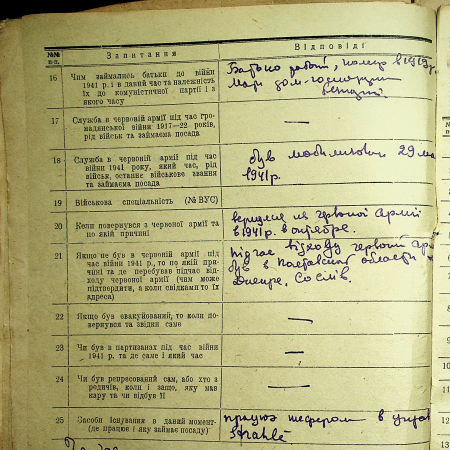 №№ п-п.
Запитання
Відповіді
16
Чим займались батьки до війни
1941 р. і в даний час та належність
їх до комуністичної партії і з
якого часу
Батько робіт, помер в 1919 р.
Мати
17
Служба в червоній армії під час гро-
мадянської війни 1917—22 років,
рід військ та займаєма посада
—
18
Служба в червоній армії під час
війни 1941 року, який час, рід
військ, останнє військове звання
та займаєма посада
був мобилизован 29 ма
1941 р.
19
Військова спеціальність (№ ВУС)
20
Коли повернувся з червоної армії та
по якій причині
вернулся из червоної армії
в 1941 р. в октябре.
21
Якщо не був в червоній армії під
час війни 1941 р., то по якій при-
чині та де перебував підчас відхо-
ду червоної армії (чим може
підтвердити, а коли свідками то їх
адреса)
підчас відходу червоної ар
був в Полтавской области
22
Якщо був евакуйований, то коли по-
вернувся та звідки саме
—
23
Чи був в партизанах під час війни
1941 р. та де саме і який час
—
24
Чи був репресований сам, або хто з
родичів, коли і защо, яку мав
кару та чи відбув її
—
25
Засоби існування в даний момент
(де працює і яку займає посаду)
працює шофером в
Strahlé